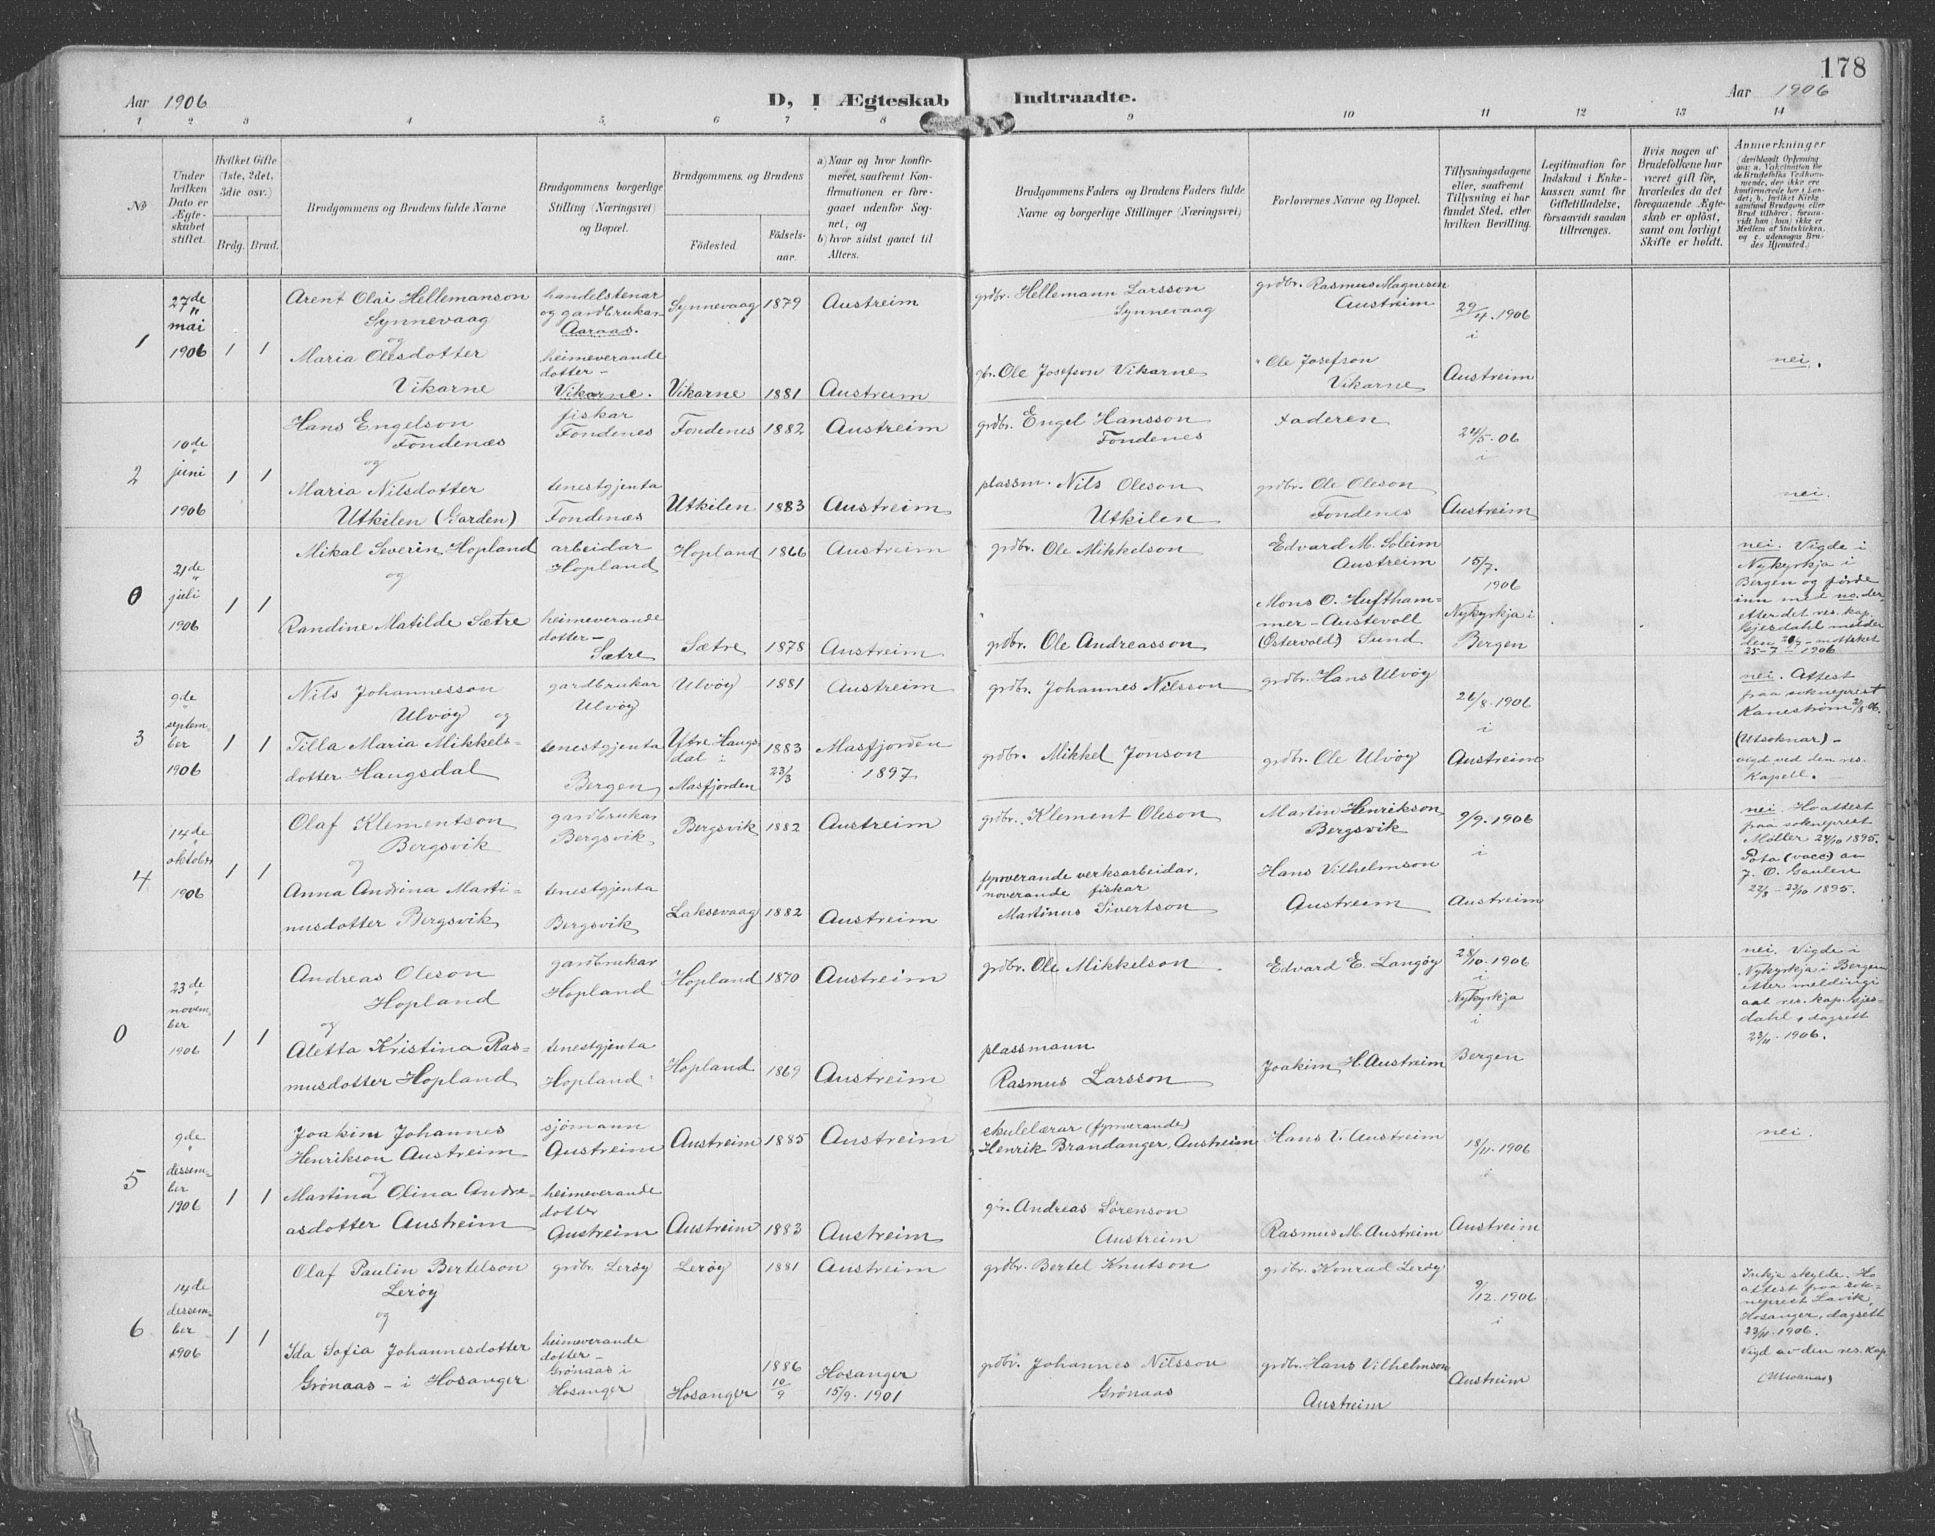 178
Aar 1906
D, I Ægteskab Indtraadte.
Aar 1906
1 2 3 4 5 6 7 8 9 10 11 12 13 14
No
Under hvilken Dato er Ægteskabet stiftet.
Hvilket Gifte (1ste, 2det, 3die osv.)
Brdg. Brud.
Brudgommens og Brudens fulde Navne
Brudgommens borgerlige Stilling (Næringsvei) og Bopæl.
Brudgommens og Brudens
Födested.
Födselsaar.
a) Naar og hvor konfirmeret, saafremt Konfirmationen er foregaaet udenfor Sognet, og
b) hvor sidst gaaet til Alters.
Brudgommens Faders og Brudens Faders fulde Navne og borgerlige Stillinger (Næringsvei)
Forlovernes Navne og Bopæl.
Tillysningsdagene eller, saafremt Tillysning ei har fundet Sted, efter hvilken Bevilling.
Legitimation for Indskud i Enkekassen samt for Giftetilladelse, forsaavidt saadan tiltrænges.
Hvis nogen af Brudefolkene har været gift før, hvorledes da det foregaaende Ægteskab er oplöst, samt om lovligt Skifte er holdt.
Anmerkninger
1
27de mai 1906
1 1
Arent Olai Hellemanson
Synnevaag
og
Maria Olesdotter
Vikarne
handelstenar
og gardbrukar
Aaraas.
heimeverande
dotter –
Vikarne.
Synnevaag 1879 Austreim
Vikarne 1881 Austreim
grdbr. Hellemann Larsson
Synnevaag
gbr. Ole Josefson Vikarne
grdbr. Rasmus Magnesen
Austreim
" Ole Josefson
Vikarne
29/4. 1906
i
Austreim
nei.
2
10de juni 1906
1 1
Hans Engelson
Fondenæs
og
Maria Nilsdotter
Utkilen (Garden)
fiskar
Fondenes
tenestgjenta
Fondenæs
Fondenes 1882 Austreim
Utkilen 1883 Austreim
grdbr. Engel Hansson
Fondenes
plassm. Nils Oleson
Utkilen
Faderen
grdbr. Ole Oleson
Fondenes
24/5. 06
i
Austreim
nei.
0
21de juli 1906
1 1
Mikal Severin Hopland
og
Randine Matilde Sætre
arbeidar
Hopland
heimeverande
dotter –
Sætre
Hopland 1866 Austreim
Sætre 1878 Austreim
grdbr. Ole Mikkelson
grdbr. Ole Andreasson
Edvard M. Soleim
Austreim
Mons O. Hufthammer – Austevoll
(Østervold) Sund
15/7.
1906
Nykyrkja i
Bergen
nei. Vigde i
Nykyrkja i
Bergen og førde
inn med no. deretter det res. kap.
Gjesdahl melder
motteket
25–7–1906
3
9de september 1906
1 1
Nils Johannesson
Ulvöy og
Tilla Maria Mikkelsdotter Haugsdal
gardbrukar
Ulvöy
tenestgjenta
Bergen
Ulvöy 1881 Austreim
Yttre Haugsdal i Masfjorden
1883
23/3
Masfjorden
1897
grdbr. Johannes Nilsson
grdbr. Mikkel Jonson
grdbr. Hans Ulvöy
grdbr. Ole Ulvöy
26/8. 1906
i
Austreim
nei. Attest
fraa sokneprest
Kaneström 21/8 06.
(Utsoknar) –
vigd ved den res.
Kapell.
4
14de oktober 1906
1 1
Olaf Klementson
Bergsvik
og
Anna Andrina Martinusdotter Bergsvik
gardbrukar
Bergsvik
tenestgjenta
Bergsvik
Bergsvik 1882 Austreim
Laksevaag 1882 Austreim
grdbr. Klement Oleson
fyrverande verksarbeidar,
noverande fiskar
Martinus Sivertson
Martin Henrikson
Bergsvik
Hans Vilhelmson
Austreim
9/9. 1906
i
Austreim
nei Ho attest
fraa sokneprest
Møller 24/10 1895.
Pota (vacc) av
J. O. Gaulen
22/8 – 23/10 1895.
0
23de november 1906
1 1
Andreas Oleson
Hopland
og
Aletta Kristina Rasmusdotter Hopland
gardbrukar
Hopland
tenestgjenta
Hopland
Hopland 1870 Austreim
Hopland 1869 Austreim
grdbr. Ole Mikkelson
plassmann
Rasmus Larsson
Edvard E. Langöy
Joakim H. Austreim
28/10. 1906
i
Nykyrkja
i
Bergen
nei. Vigde i
Nykyrkja i Bergen
etter melding i
aat res. kap. Gjesdahl, dagsett
23/11. 1906.
5
9de dessember 1906
1 1
Joakim Johannes
Henrikson Austreim
og
Martina Olina Andreasdotter Austreim
sjömann
Austreim
heimeverande
dotter
Austreim
Austreim 1885 Austreim
Austreim 1883 Austreim
skulelærar (fyrverande)
Henrik Brandanger, Austreim
gbr. Andreas Sörenson
Austreim
Hans V. Austreim
Rasmus M. Austreim
18/11. 1906
i
Austreim
nei.
6
14de dessember 1906
1 1
Olaf Paulin Bertelson
Leröy
og
Ida Sofia Johannesdotter
Grönaas – i Hosanger
grdbr. Leröy
heimeverande
dotter –
Grönaas i
Hosanger
Leröy 1881 Austreim
Hosanger
1886
10/9
Hosanger
15/9. 1901
grdbr. Bertel Knutson
grdbr. Johannes Nilsson
Grönaas
grdbr. Konrad Leröy
grdbr. Hans Vilhelmson
Austreim
9/12. 1906
i
Austreim
Inkje skylde. Ho
attest fraa sokneprest Lavik,
Hosanger, dagsett
23/11. 1906.
Vigd av den res. kap.